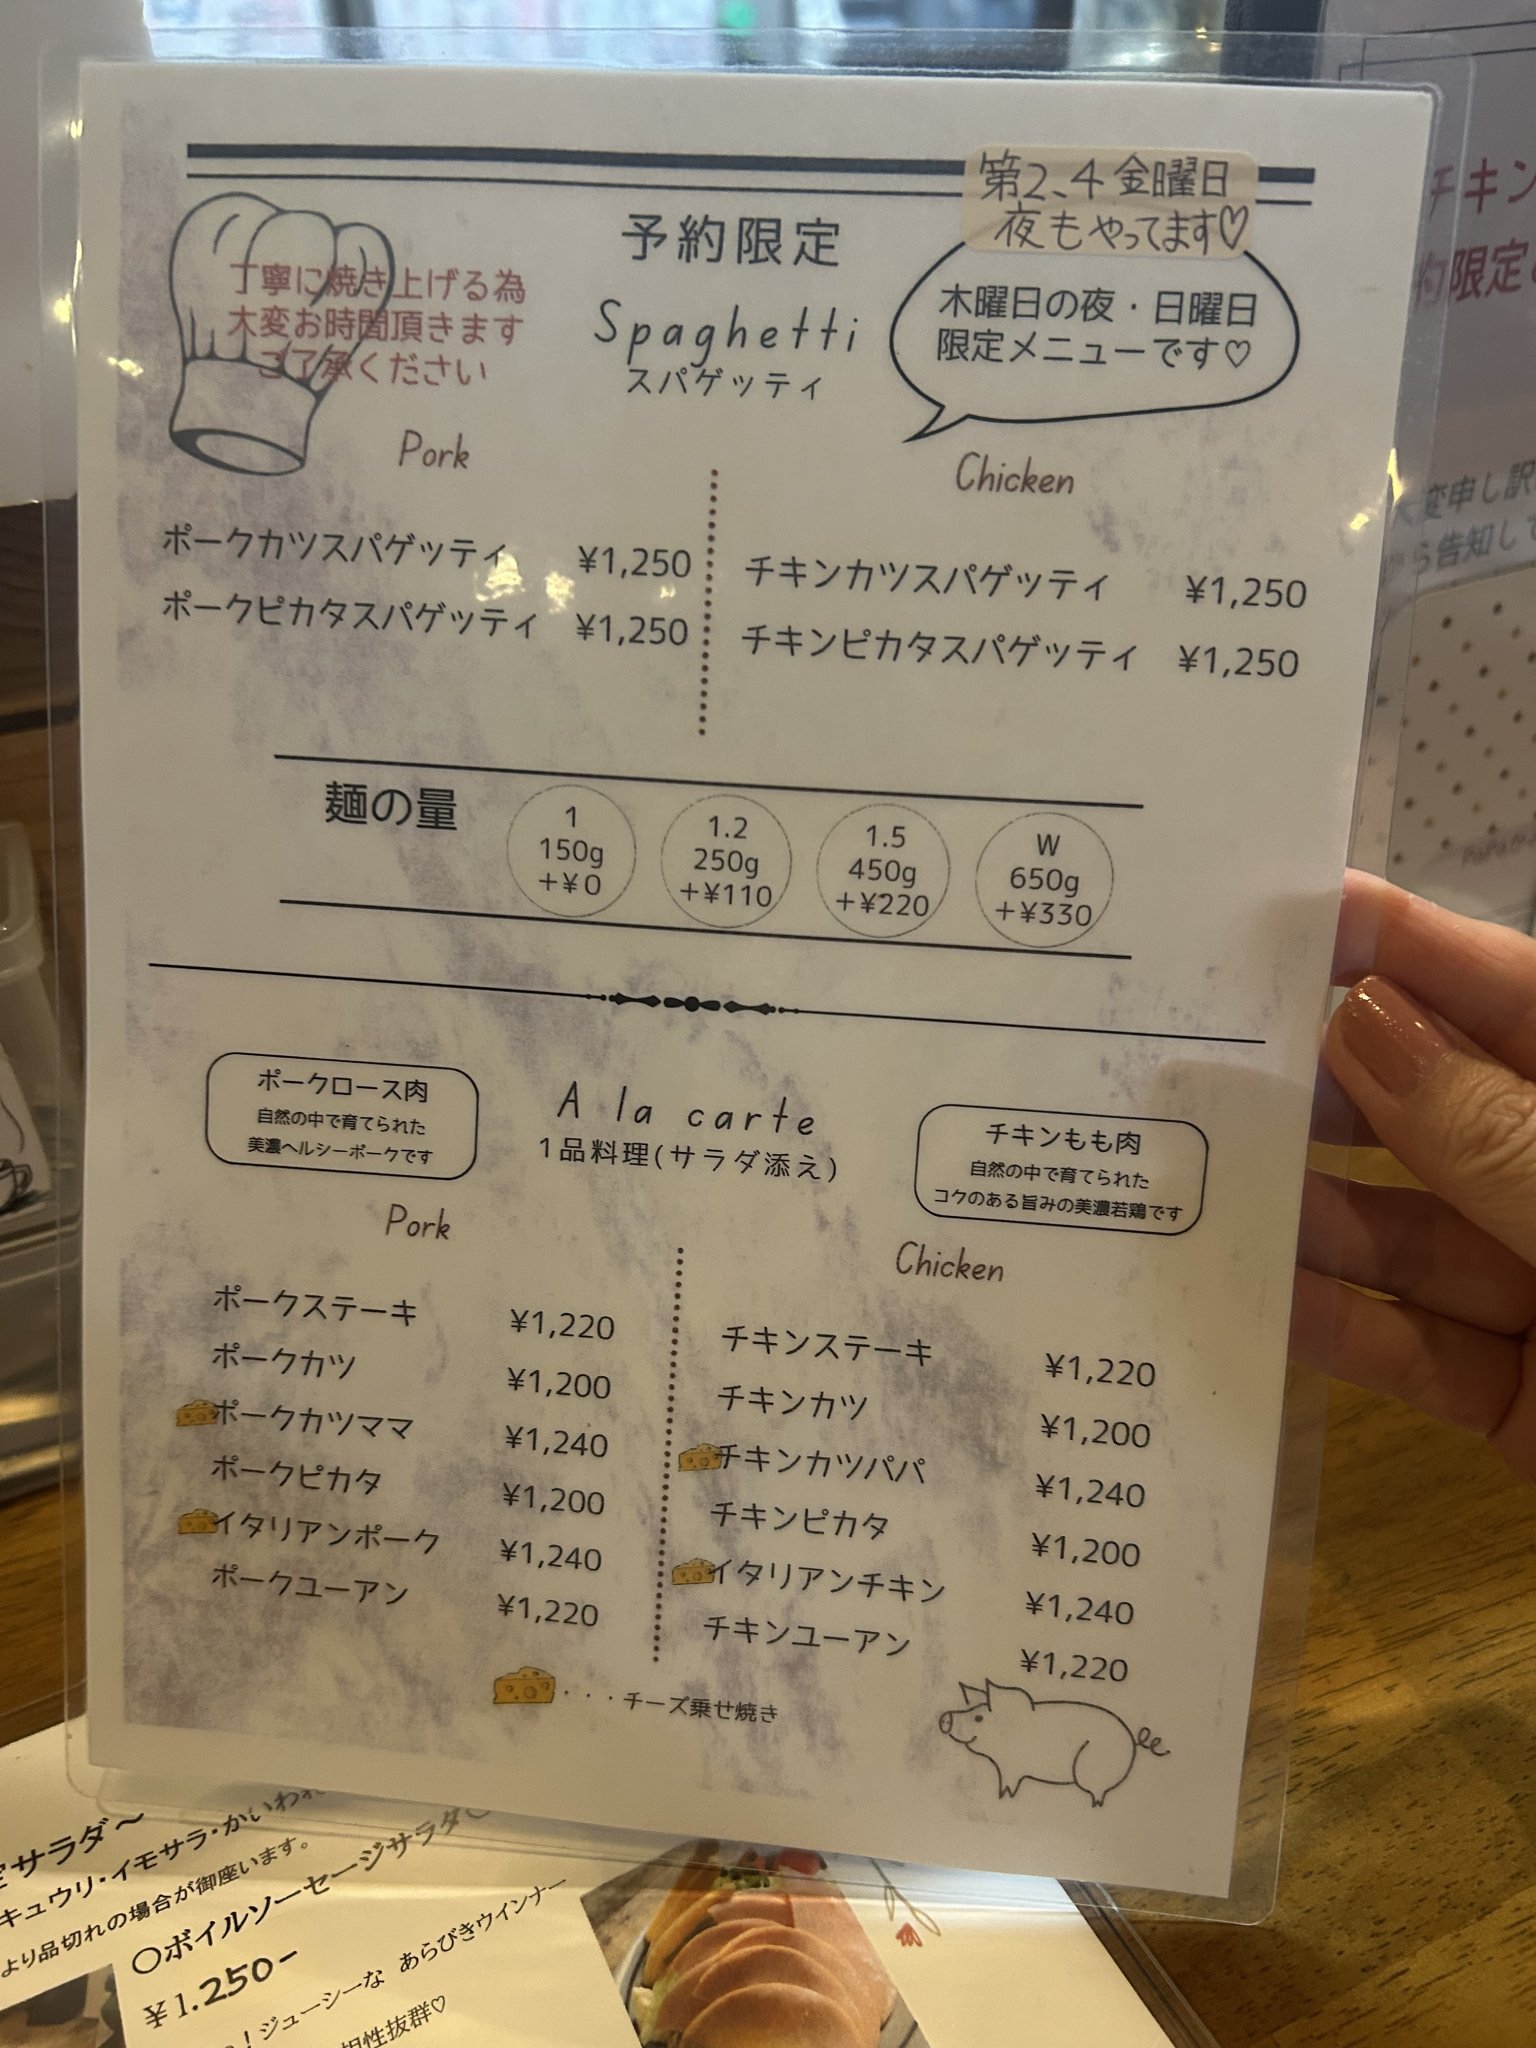 第2、4金曜日
夜もやってます♡
予約限定
丁寧に焼き上げる為
大変お時間頂きます
ご了承ください
Spaghetti
スパゲッティ
木曜日の夜・日曜日
限定メニューです♡
Pork
ポークカツスパゲッティ ¥1,250
ポークピカタスパゲッティ ¥1,250
Chicken
チキンカツスパゲッティ ¥1,250
チキンピカタスパゲッティ ¥1,250
麺の量
1
150g
+¥0
1.2
250g
+¥110
1.5
450g
+¥220
W
650g
+¥330
ポークロース肉
自然の中で育てられた
美濃ヘルシーポークです
A la carte
1品料理(サラダ添え)
チキンもも肉
自然の中で育てられた
コクのある旨みの美濃若鶏です
Pork
ポークステーキ ¥1,220
ポークカツ ¥1,200
ポークカツママ ¥1,240
ポークピカタ ¥1,200
イタリアンポーク ¥1,240
ポークユーアン ¥1,220
Chicken
チキンステーキ ¥1,220
チキンカツ ¥1,200
チキンカツパパ ¥1,240
チキンピカタ ¥1,200
イタリアンチキン ¥1,240
チキンユーアン ¥1,220
・・・チーズ乗せ焼き
チキン
限定
変申し訳
ら告知して
サラダ～
キュウリ・イモサラ・かいわれ
より品切れの場合が御座います。
〇ボイルソーセージサラダ
¥1.250-
！ジューシーな あらびきウインナー
相性抜群♡